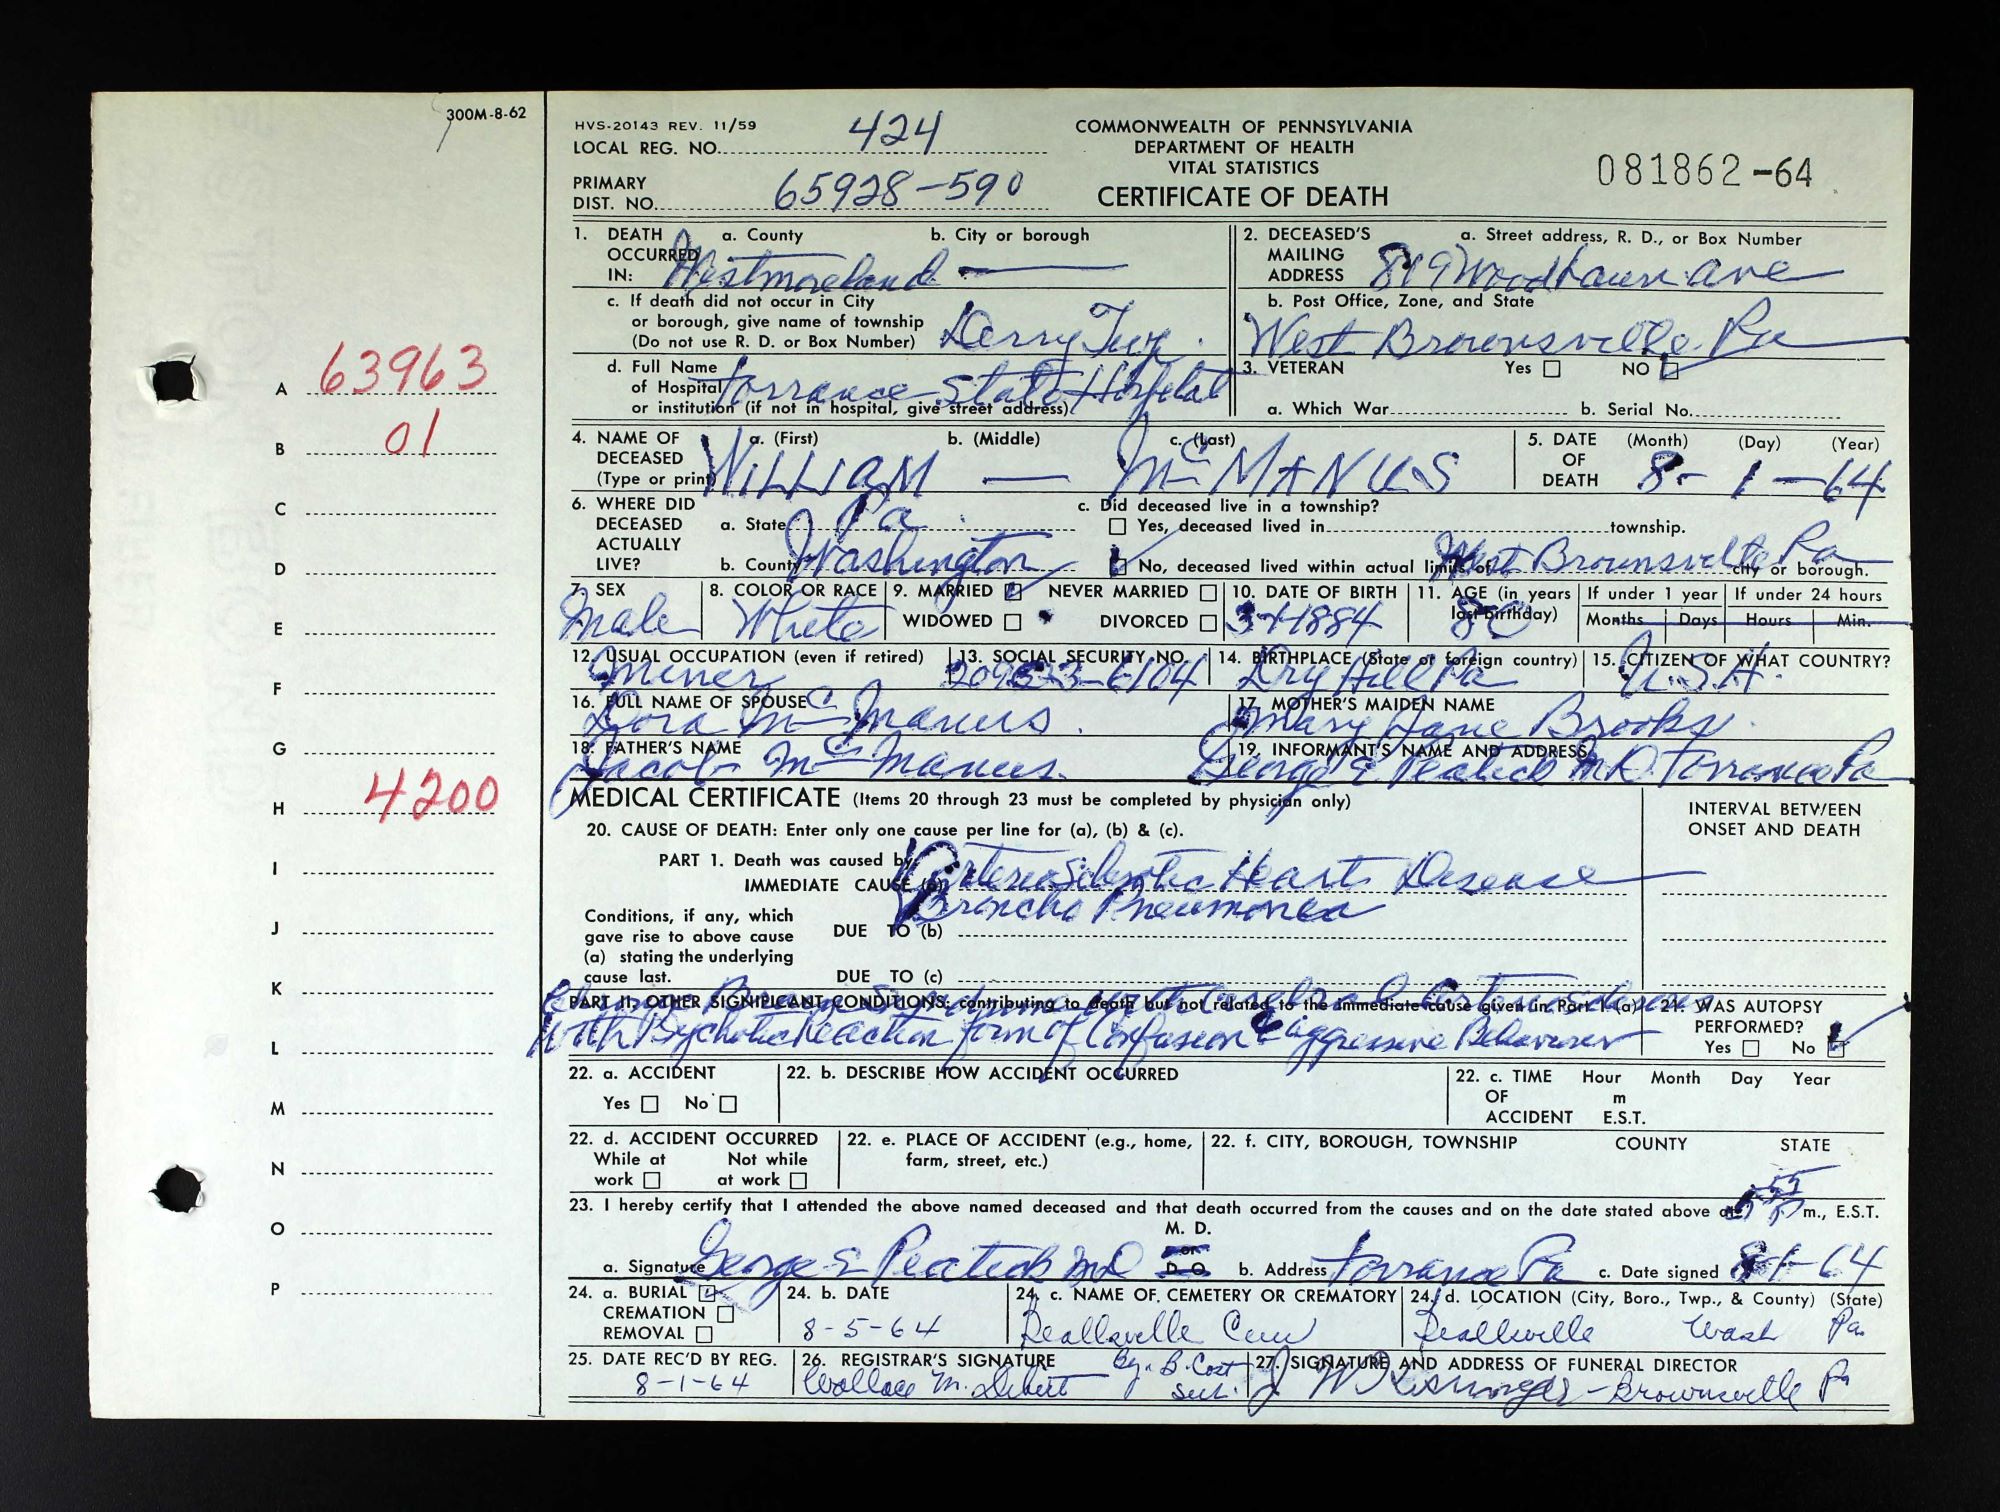 300M-8-62
HVS-20143 REV. 11/59
LOCAL REG. NO. 424
PRIMARY
DIST. NO. 65928-590
COMMONWEALTH OF PENNSYLVANIA
DEPARTMENT OF HEALTH
VITAL STATISTICS
CERTIFICATE OF DEATH
081862-64
A 63963
B 01
C
D
E
F
G
H 4200
I
J
K
L
M
N
O
P
1. DEATH OCCURRED IN: a. County b. City or borough
Westmoreland —
c. If death did not occur in City
or borough, give name of township
(Do not use R. D. or Box Number) Derry Twp.
d. Full Name
of Hospital Torrance State Hospital
or institution (if not in hospital, give street address)
2. DECEASED'S MAILING ADDRESS a. Street address, R. D., or Box Number
819 Woodlawn ave
b. Post Office, Zone, and State
West Brownsville Pa
3. VETERAN Yes NO
a. Which War b. Serial No.
4. NAME OF DECEASED (Type or print) a. (First) b. (Middle) c. (Last)
WILLIAM — Mc MANUS
5. DATE OF DEATH (Month) (Day) (Year)
8- 1-64
6. WHERE DID DECEASED ACTUALLY LIVE?
a. State Pa.
b. County Washington
c. Did deceased live in a township?
Yes, deceased lived in township.
No, deceased lived within actual limits of West Brownsville Pa city or borough.
7. SEX
Male
8. COLOR OR RACE
White
9. MARRIED NEVER MARRIED
WIDOWED DIVORCED
10. DATE OF BIRTH
3-1-1884
11. AGE (in years last birthday)
80
If under 1 year
Months Days
If under 24 hours
Hours Min.
12. USUAL OCCUPATION (even if retired)
Miner
13. SOCIAL SECURITY NO.
14. BIRTHPLACE (State or foreign country)
Dry Hill Pa
15. CITIZEN OF WHAT COUNTRY?
U.S.A.
16. FULL NAME OF SPOUSE
Dora Mc Manus.
17. MOTHER'S MAIDEN NAME
Mary Jane Brooks
18. FATHER'S NAME
Jacob Mc Manus.
19. INFORMANT'S NAME AND ADDRESS
George E M.D. Torrance Pa
MEDICAL CERTIFICATE (Items 20 through 23 must be completed by physician only)
INTERVAL BETWEEN
ONSET AND DEATH
20. CAUSE OF DEATH: Enter only one cause per line for (a), (b) & (c).
PART 1. Death was caused by
IMMEDIATE CAUSE (a) Arteriosclerotic Heart Disease
Broncho Pneumonia
Conditions, if any, which
gave rise to above cause
(a) stating the underlying
cause last.
DUE TO (b)
DUE TO (c)
PART II. OTHER SIGNIFICANT CONDITIONS: contributing to death but not related to the immediate cause given in Part 1 (a)
Chronic Brain Syndrome with Cerebral Arteriosclerosis
With Psychotic Reaction form of Confusion & aggressive Behaviour
21. WAS AUTOPSY
PERFORMED?
Yes No
22. a. ACCIDENT
Yes No
22. b. DESCRIBE HOW ACCIDENT OCCURRED
22. c. TIME Hour Month Day Year
OF m
ACCIDENT E.S.T.
22. d. ACCIDENT OCCURRED
While at Not while
work at work
22. e. PLACE OF ACCIDENT (e.g., home,
farm, street, etc.)
22. f. CITY, BOROUGH, TOWNSHIP COUNTY STATE
23. I hereby certify that I attended the above named deceased and that death occurred from the causes and on the date stated above at 5 55 P m., E.S.T.
M. D.
or
D. O.
a. Signature George E MD
b. Address Torrance Pa
c. Date signed 8-1-64
24. a. BURIAL
CREMATION
REMOVAL
24. b. DATE
8-5-64
24. c. NAME OF CEMETERY OR CREMATORY
Beallsville Cem
24. d. LOCATION (City, Boro., Twp., & County) (State)
Beallsville Wash Pa.
25. DATE REC'D BY REG.
8-1-64
26. REGISTRAR'S SIGNATURE
Wallace M. By. B. Cost
27. SIGNATURE AND ADDRESS OF FUNERAL DIRECTOR
J W - Brownsville Pa